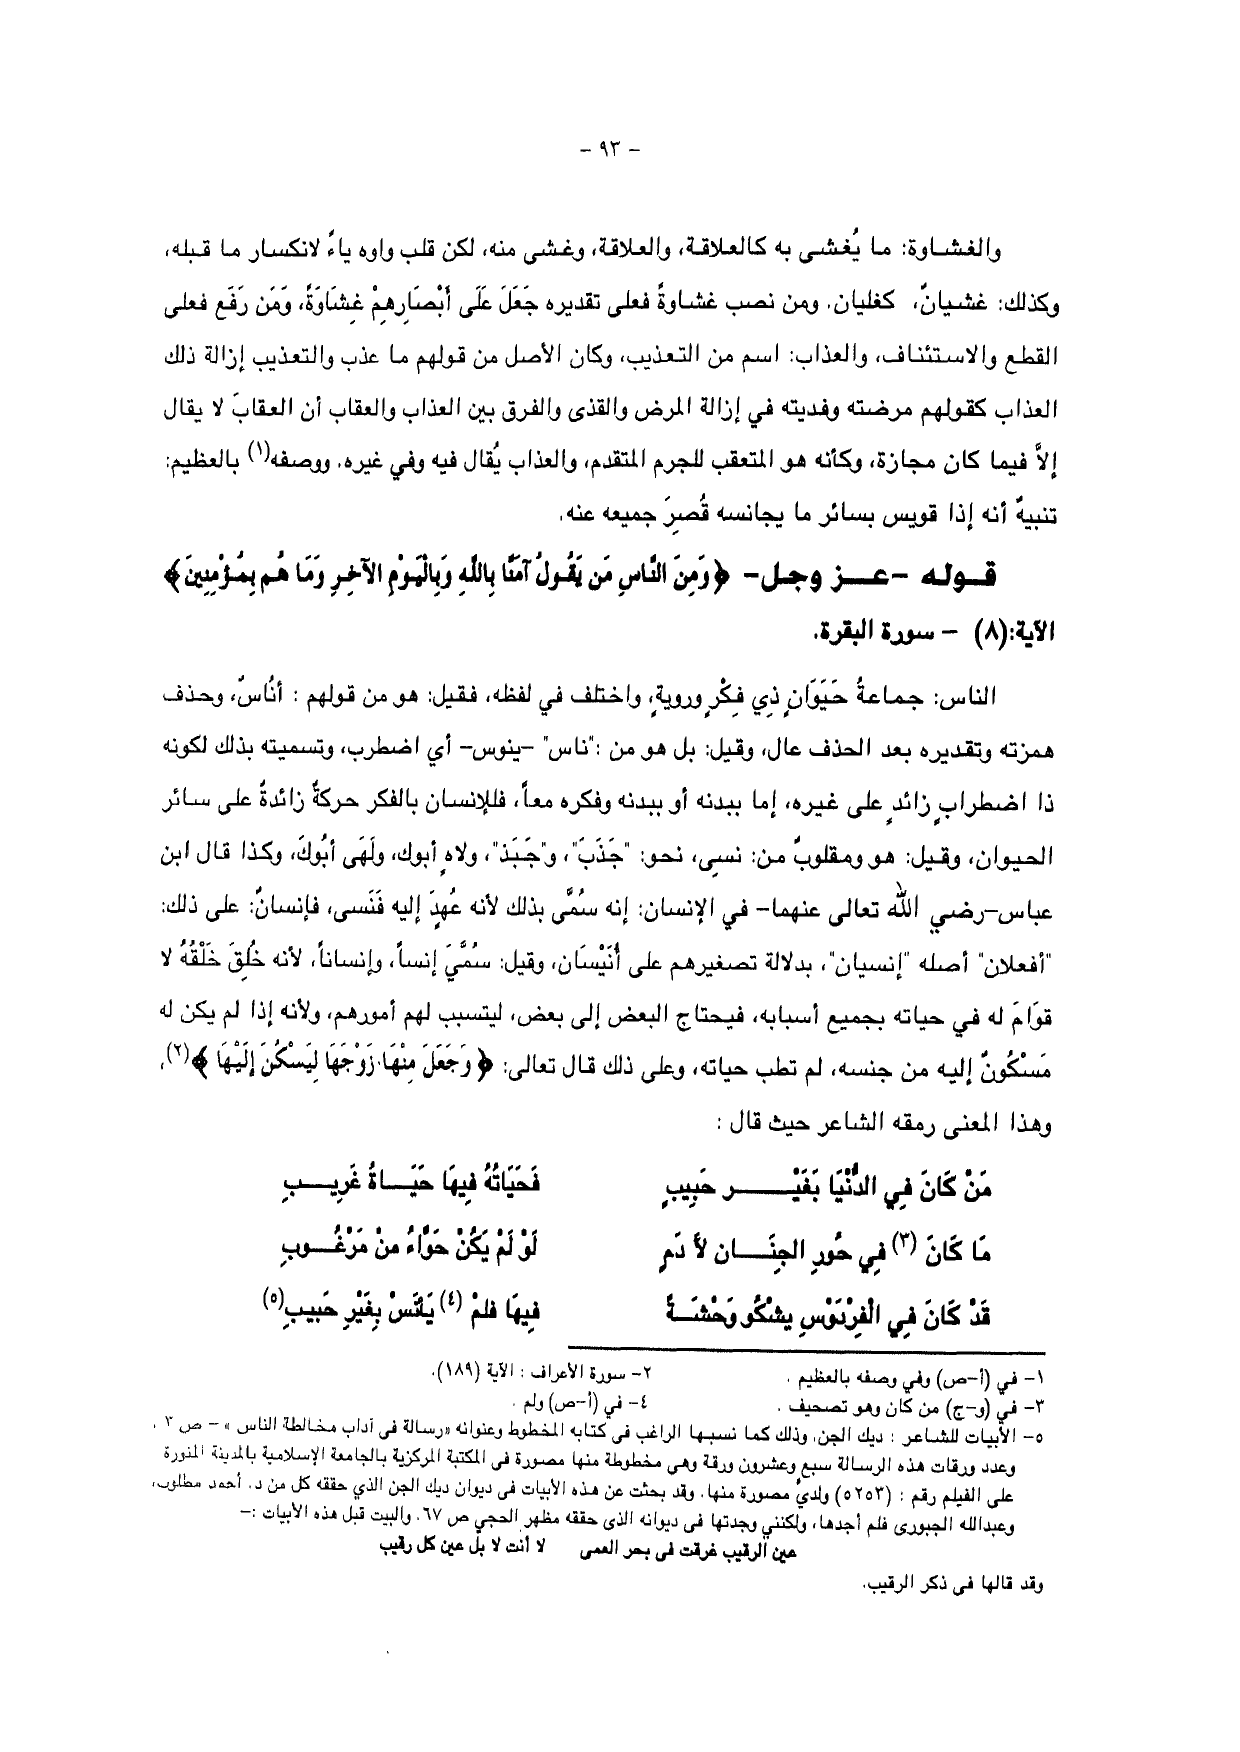 - ٩٣ -
والغشاوة: ما يُغشى به كالعلاقة، والعلاقة، وغشى منه، لكن قلب واوه ياءً لانكسار ما قبله،
وكذلك: غشيانٌ، كغليان. ومن نصب غشاوةً فعلى تقديره جَعَلَ عَلَى أَبْصَارِهِمْ غشَاوَةً، وَمَن رَفَع فعلى
القطع والاستئناف، والعذاب: اسم من التعذيب، وكان الأصل من قولهم ما عذب والتعذيب إزالة ذلك
العذاب كقولهم مرضته وفديته في إزالة المرض والقذى والفرق بين العذاب والعقاب أن العقابَ لا يقال
إلاَّ فيما كان مجازة، وكأنه هو المتعقب للجرم المتقدم، والعذاب يُقال فيه وفي غيره. ووصفه(١) بالعظيم:
تنبيهٌ أنه إذا قويس بسائر ما يجانسه قُصِرَ جميعه عنه.
قـوله -عـــز وجـل- ﴿وَمِنَ النَّاسِ مَن يَقُولُ آمَنَّا بِاللَّهِ وَبِالْيَوْمِ الآخِرِ وَمَا هُم بِمُؤْمِنِينَ﴾
الآية:(٨) - سورة البقرة.
الناس: جماعةُ حَيَوَانٍ ذِي فِكْرٍ ورويةٍ، واختلف في لفظه، فقيل: هو من قولهم : أُنَاسٌ، وحذف
همزته وتقديره بعد الحذف عال، وقيل: بل هو من :"ناس" -ينوس- أي اضطرب، وتسميته بذلك لكونه
ذا اضطرابٍ زائدٍ على غيره، إما ببدنه أو ببدنه وفكره معاً، فللإنسان بالفكر حركةٌ زائدةٌ على سائر
الحيوان، وقيل: هو ومقلوبٌ من: نسي، نحو: "جَذَبَ"، و"جَبَذ"، ولاهِ أبوك، ولَهَى أبُوكَ، وكذا قال ابن
عباس-رضي الله تعالى عنهما- في الإنسان: إنه سُمِّى بذلك لأنه عُهِدَ إليه فَنَسى، فإنسانٌ: على ذلك:
"أفعلان" أصله "إنسيان"، بدلالة تصغيرهم على أُنَيْسَان، وقيل: سُمِّيَ إنساً، وإنساناً، لأنه خُلِقَ خَلْقُهُ لا
قوَامَ له في حياته بجميع أسبابه، فيحتاج البعض إلى بعض، ليتسبب لهم أمورهم، ولأنه إذا لم يكن له
مَسْكُونٌ إليه من جنسه، لم تطب حياته، وعلى ذلك قال تعالى: ﴿ وَجَعَلَ مِنْهَا زَوْجَهَا لِيَسْكُنَ إِلَيْهَا ﴾(٢).
وهذا المعنى رمقه الشاعر حيث قال :
مَنْ كَانَ فِي الدُّنْيَا بَغَيْـــــــرِ حَبِيبٍ فَحَيَاتُهُ فِيهَا حَيَـــاةُ غَرِيـــــبِ
مَا كَانَ (٣) فِي حُورِ الجِنَـــــانِ لأَدَمٍ لَوْ لَمْ يَكُنْ حَوَّاءُ منْ مَرْغُـــوبِ
قَدْ كَانَ فِي الْفِرْدَوْسِ يشْكُو وَحْشَـــةً فِيهَا فلمْ (٤) يَأنَسْ بِغَيْرِ حَبيبِ(٥)
١- في (أ-ص) وفي وصفه بالعظيم . ٢- سورة الأعراف : الآية (١٨٩).
٣- في (و-ج) من كان وهو تصحيف . ٤- في (أ-ص) ولم .
٥- الأبيات للشاعر : ديك الجن. وذلك كما نسبها الراغب فى كتابه المخطوط وعنوانه «رسالة فى آداب مخالطة الناس » - ص ٢ .
وعدد ورقات هذه الرسالة سبع وعشرون ورقة وهي مخطوطة منها مصورة فى المكتبة المركزية بالجامعة الإسلامية بالمدينة المنورة
على الفيلم رقم : (٥٢٥٣) ولديَّ مصورة منها. وقد بحثت عن هذه الأبيات فى ديوان ديك الجن الذي حققه كل من د. أحمد مطلوب،
وعبدالله الجبورى فلم أجدها، ولكنني وجدتها فى ديوانه الذى حققه مظهر الحجي ص ٦٧. والبيت قبل هذه الأبيات :-
عين الرقيب غرقت فى بحر العمى لا أنت لا بل عين كل رقيب
وقد قالها فى ذكر الرقيب.